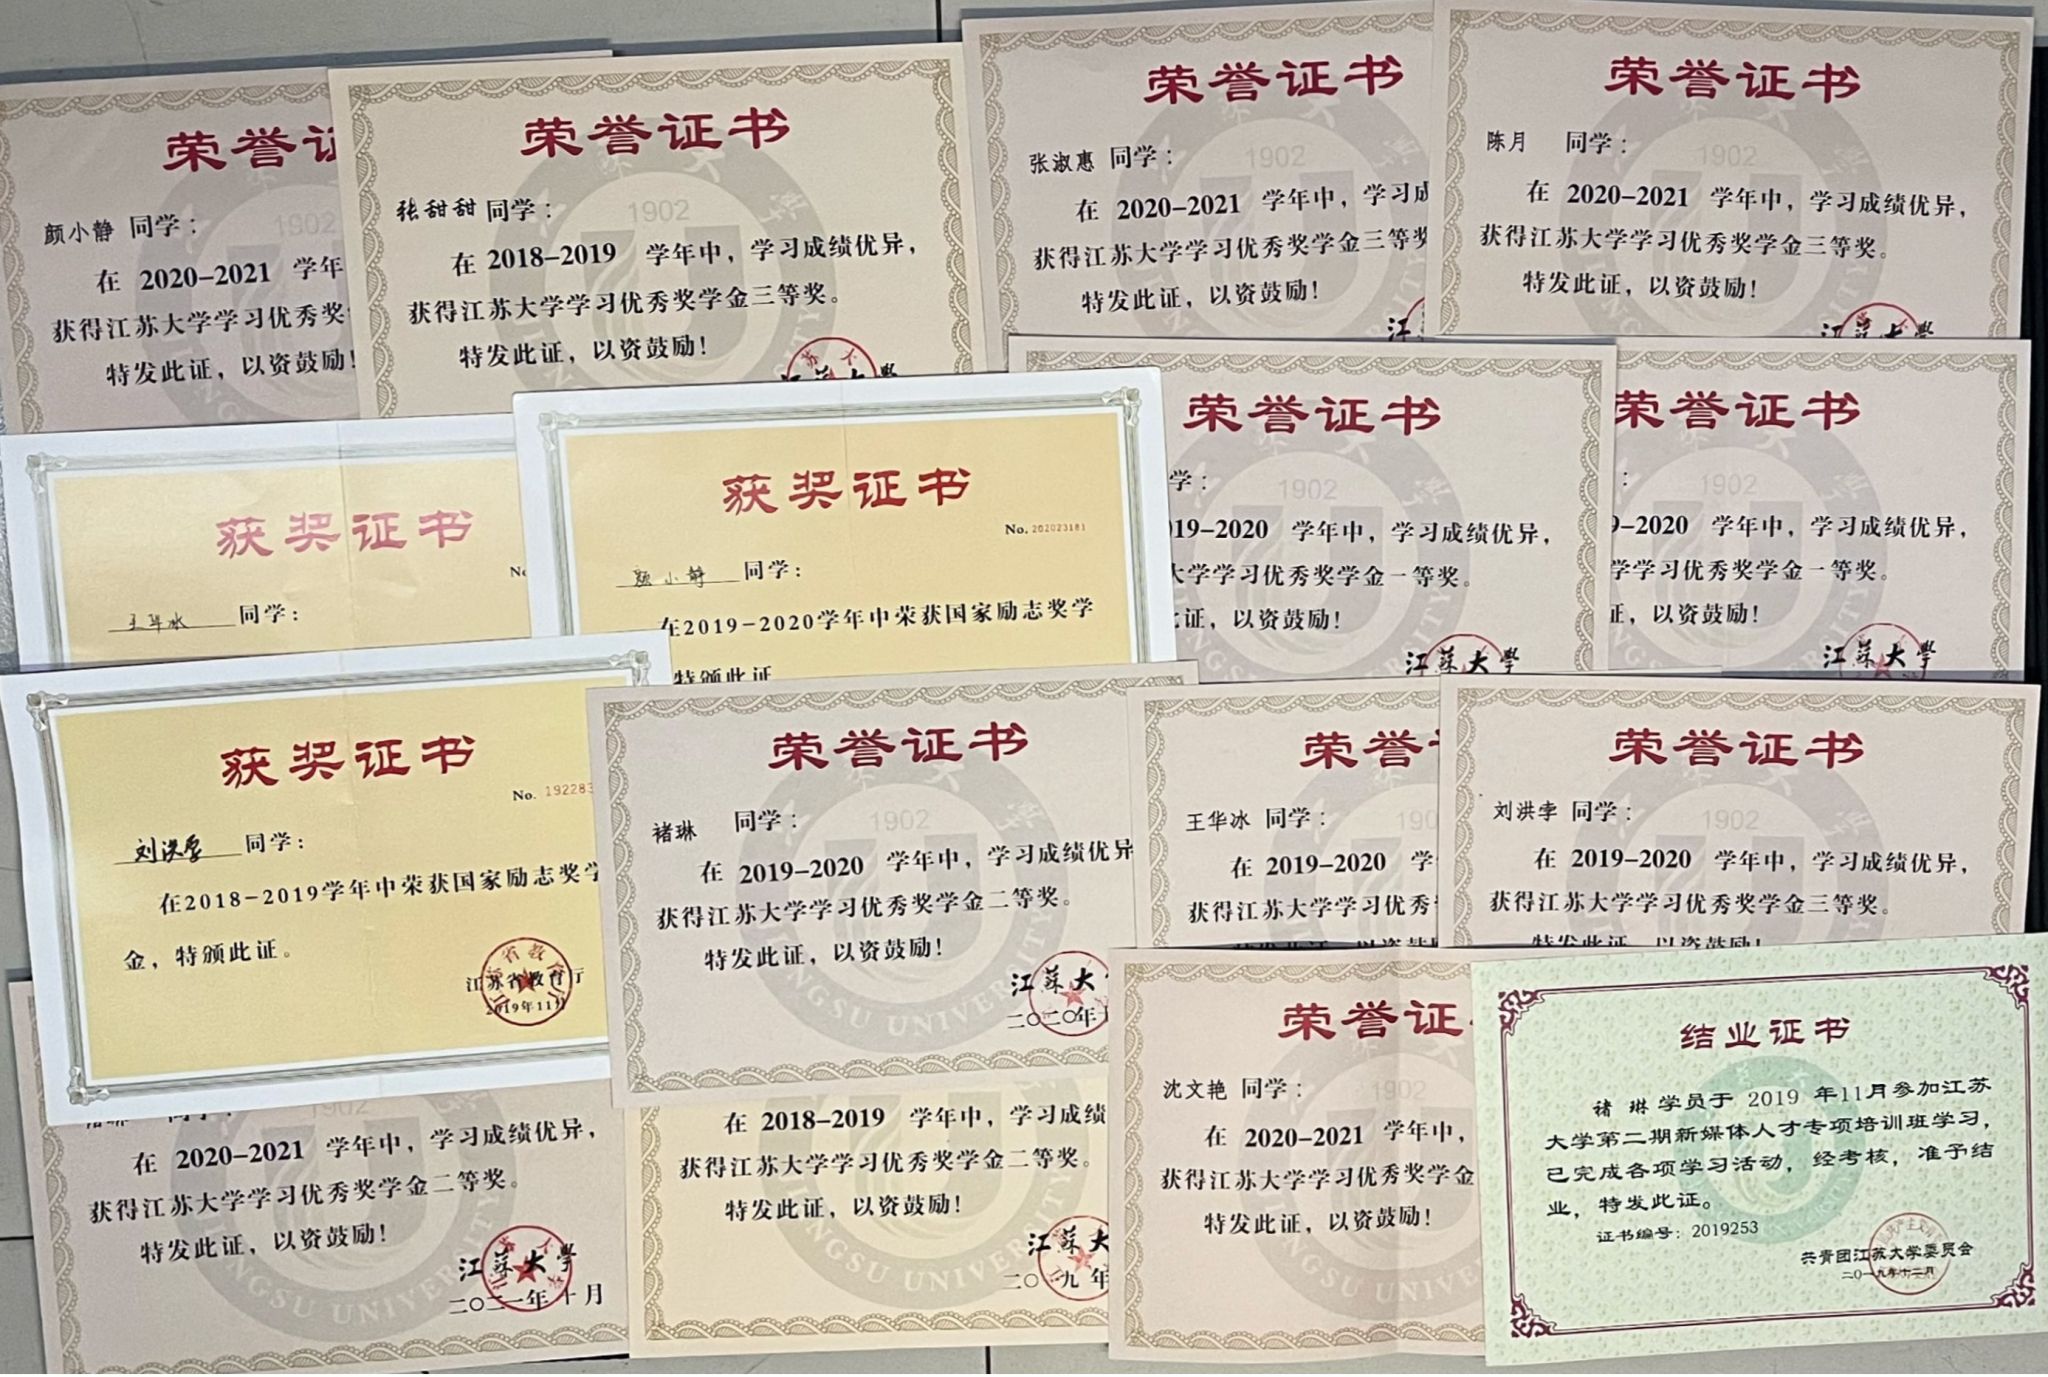 荣誉证
颜小静 同学：
在 2020-2021 学年
获得江苏大学学习优秀奖
特发此证，以资鼓励！
荣誉证书
1902
张甜甜 同学：
在 2018-2019 学年中，学习成绩优异，
获得江苏大学学习优秀奖学金三等奖。
特发此证，以资鼓励！
江苏大學
荣誉证书
1902
张淑惠 同学：
在 2020-2021 学年中，学习成
获得江苏大学学习优秀奖学金三等奖
特发此证，以资鼓励！
江
荣誉证书
1902
陈月 同学：
在 2020-2021 学年中，学习成绩优异，
获得江苏大学学习优秀奖学金三等奖。
特发此证，以资鼓励！
江蘇大學
获奖证书
王华冰 同学：
获奖证书
No. 202023181
颜小静 同学：
在2019-2020学年中荣获国家励志奖学
特颁此证
荣誉证书
1902
学：
19-2020 学年中，学习成绩优异，
大学学习优秀奖学金一等奖。
此证，以资鼓励！
江蘇大學
荣誉证书
1902
：
9-2020 学年中，学习成绩优异，
学学习优秀奖学金一等奖。
证，以资鼓励！
江蘇大學
获奖证书
No. 192283
刘洪孛 同学：
在2018-2019学年中荣获国家励志奖学
金，特颁此证。
江苏省教育厅
2019年11月
荣誉证书
1902
褚琳 同学：
在 2019-2020 学年中，学习成绩优异
获得江苏大学学习优秀奖学金二等奖。
特发此证，以资鼓励！
江蘇大
二〇二〇年
荣誉
王华冰 同学：
在 2019-2020 学
获得江苏大学学习优秀
特发此证，以资鼓
荣誉证书
1902
刘洪孛 同学：
在 2019-2020 学年中，学习成绩优异，
获得江苏大学学习优秀奖学金三等奖。
特发此证，以资鼓励！
1902
在 2020-2021 学年中，学习成绩优异，
获得江苏大学学习优秀奖学金二等奖。
特发此证，以资鼓励！
江蘇大學
二〇二一年十月
JIANGSU UNIVERSITY
在 2018-2019 学年中，学习成绩
获得江苏大学学习优秀奖学金二等奖。
特发此证，以资鼓励！
江蘇大
二〇一九年
荣誉证
1902
沈文艳 同学：
在 2020-2021 学年中，
获得江苏大学学习优秀奖学金
特发此证，以资鼓励！
结业证书
褚 琳学员于 2019 年11月参加江苏
大学第二期新媒体人才专项培训班学习，
已完成各项学习活动，经考核，准予结
业，特发此证。
证书编号：2019253
共青团江苏大学委员会
二〇一九年十二月